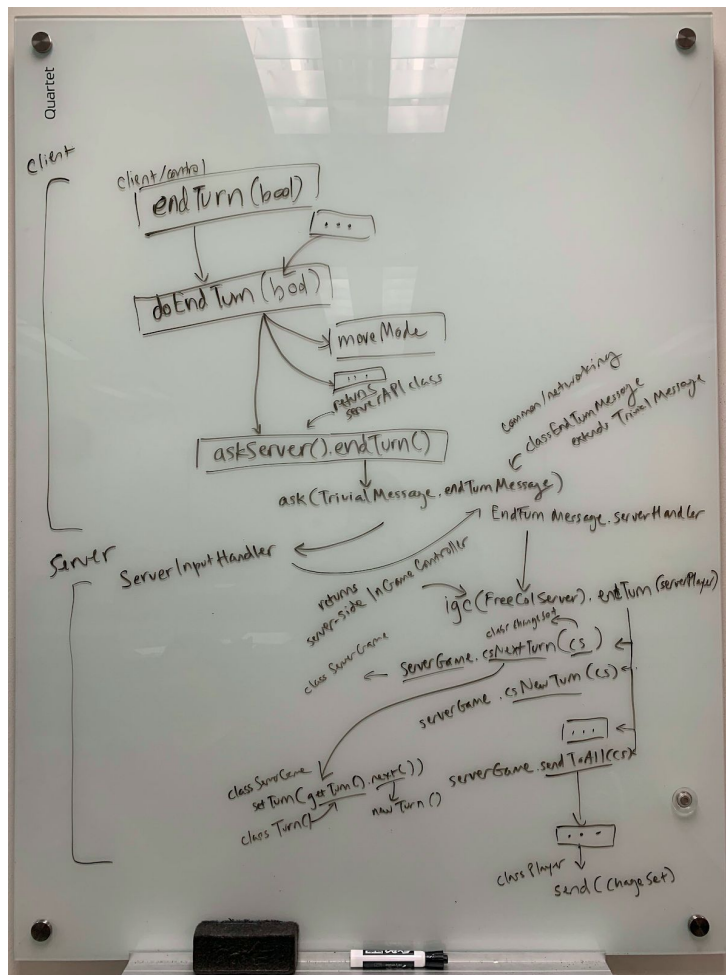 Quartet
client
client/control
endTurn(bool)
...
doEndTurn(bool)
moveMode
...
returns
serverAPI class
askServer().endTurn()
common/networking
class EndTurnMessage
extends Trivial Message
ask(TrivialMessage.endTurnMessage)
EndTurn Message.serverHandler
Server
ServerInputHandler
returns
server-side InGameController
igc(FreeColServer).endTurn(serverPlayer)
class changeSet
class ServerGame
ServerGame.csNextTurn(cs)
serverGame.csNewTurn(cs)
...
serverGame.sendToAll(cs)
class ServerGame
setTurn(getTurn().next())
class Turn()
newTurn()
...
class Player
send(ChageSet)